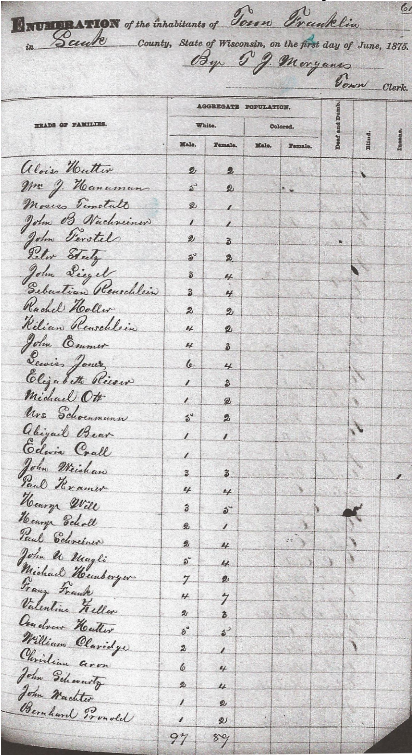 ENUMERATION of the inhabitants of Town Franklin
in Sauk County, State of Wisconsin, on the first day of June, 1875.
By T J Morgans
Town Clerk.
HEADS OF FAMILIES.
AGGREGATE POPULATION.
White. Colored.
Male. Female. Male. Female. Deaf and Dumb. Blind. Insane.
Alois Hutter 2 2
Mrs J Hanaman 5 2
Moses Tunstall 2 1
John B Wachreiner 1 1
John Forstel 2 3
Peter 5 2
John Liegel 3 4
Sebastian Reuschlein 3 4
Rachel Holler 2 2
Kilian Reuschlein 4 2
John Emmer 4 3
Lewiss Jones 6 4
Elizabeth Rieser 1 3
Michael Ott 1 2
Urs Schoenmann 5 2
Abigail Bear 1 1
Edwin Crall 1
John Weishan 3 3
Paul Kramer 4 4
Henry Will 3 5
Henry Scholl 2 1
Paul Schreiner 2 4
John U Magli 5 4
Michael Hemberger 7 2
Franz Frank 4 7
Valentine Keller 2 3
Andrew Hutter 5 5
William Claridge 2 1
Christian aron 6 4
John Schwartz 2 4
John Wachter 1 2
Bernhard 1 2
97 89